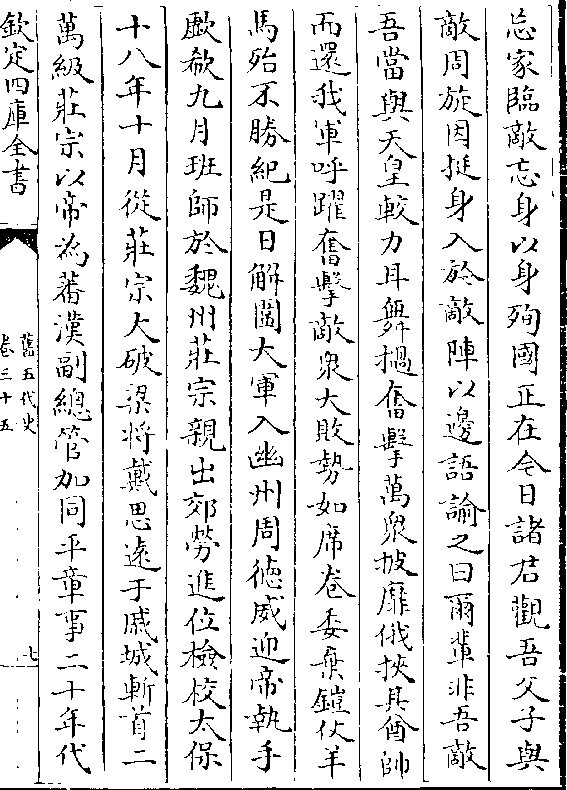 忘家臨敵忘身以身殉國正在今日諸君觀吾父子與
敵周旋因挺身入於敵陣以邊語諭之曰爾輩非吾敵
吾當與天皇較力耳舞檛奮擊萬衆披靡俄挾其酋帥
而還我軍呼躍奮擊敵衆大敗勢如席卷委棄鎧仗羊
馬殆不勝紀是日解圍大軍入幽州周德威迎帝執手
歔欷九月班師於魏州莊宗親出郊勞進位檢校太保
十八年十月從莊宗大破梁將戴思遠于戚城斬首二
萬級莊宗以帝為蕃漢副總管加同平章事二十年代
欽定四庫全書
舊五代史
卷三十五
七